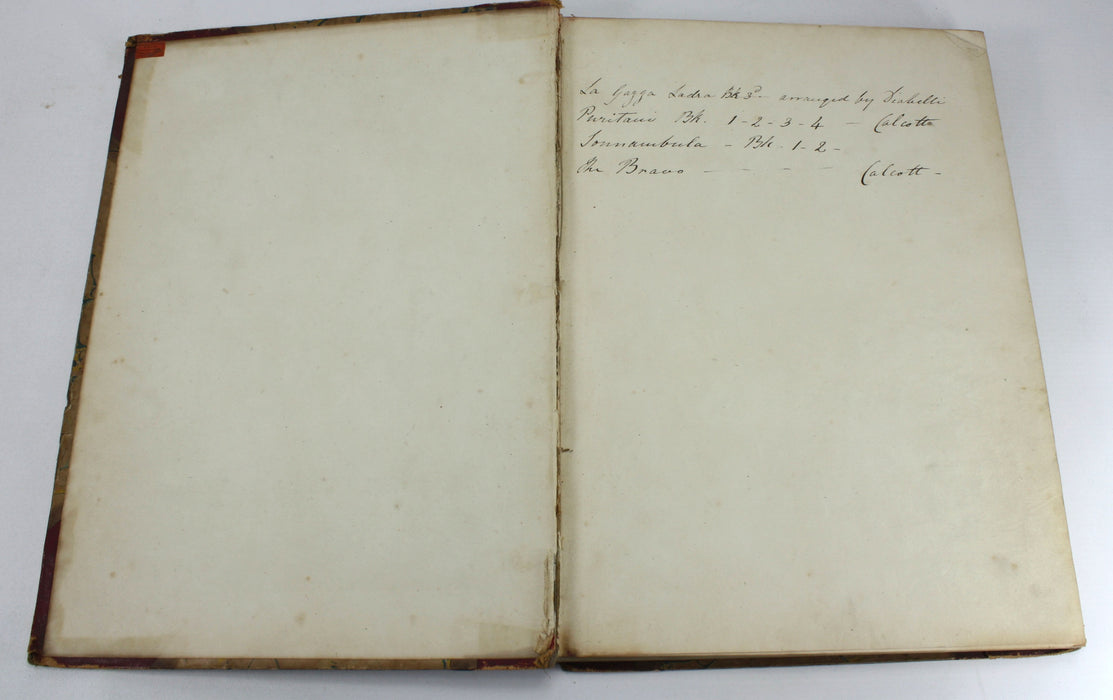 La Gazza Ladra Bk 3d - arranged by Diabelli
Puritani Bk. 1 - 2 - 3 - 4 - Calcott
Sonnambula - Bk. 1 - 2 -
The Bravo - - - - Calcott -